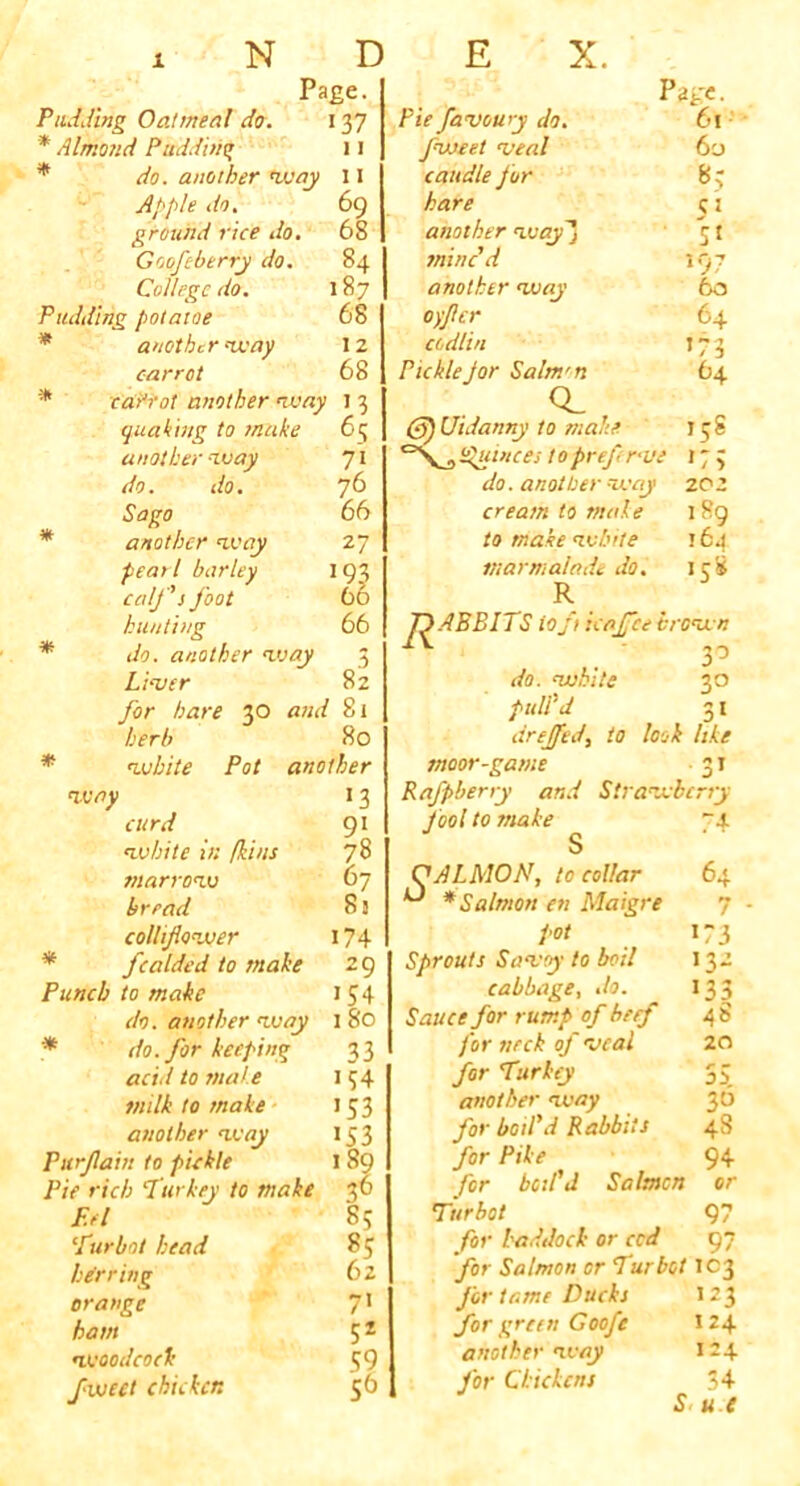 I N D E X.
Page.
Pudding Oatmeal do. 137
* Almond Pudding 11
* do. another way 11
Apple do. 69
ground rice do. 68
Gooſeberry do. 84
College do. 187
Pudding potatoe 68
* another way 12
carrot 68
* carrot another way 13
quaking to make 65
another way 71
do. do. 76
Sago 66
* another way 27
pearl barley 193
calf's foot 66
hunting 66
* do. another way 3
Liver 82
for hare 30 and 81
herb 80
* white Pot another
way 13
curd 91
white in ſkins 78
marrow 67
bread 81
colliflower 174
* ſcalded to make 29
Punch to make 154
do. another way 180
* do. for keeping 33
acid to make 154
milk to make 153
another way 153
Purſlain to pickle 189
Pie rich Turkey to make 36
Eel 85
Turbot head 85
herring 62
orange 71
ham 52
woodcock 59
ſweet chicken 56
Page.
Pie ſavoury do. 61
ſweet veal 60
caudle for 85
hare 51
another way] 51
minc'd 197
another way 60
oyſter 64
codlin 173
Pickle for Salmon 64
Q
QUidanny to make 158
Quinces to preſerve 175
do. another way 202
cream to make 189
to make white 164
marmalade do. 158
R
RABBITS to fricaſſee brown
30
do. white 30
pull'd 31
dreſſed, to look like
moor-game 31
Raſpberry and Strawberry
fool to make 74
S
SALMON, to collar 64
* Salmon en Maigre 7
pot 173
Sprouts Savoy to boil 132
cabbage, do. 133
Sauce for rump of beef 48
for neck of veal 20
for Turkey 35
another way 30
for boil'd Rabbits 48
for Pike 94
for boil'd Salmon or
Turbot 97
for haddock or cod 97
for Salmon or Turbot 103
for tame Ducks 123
for green Gooſe 124
another way 124
for Chickens 34
S u e